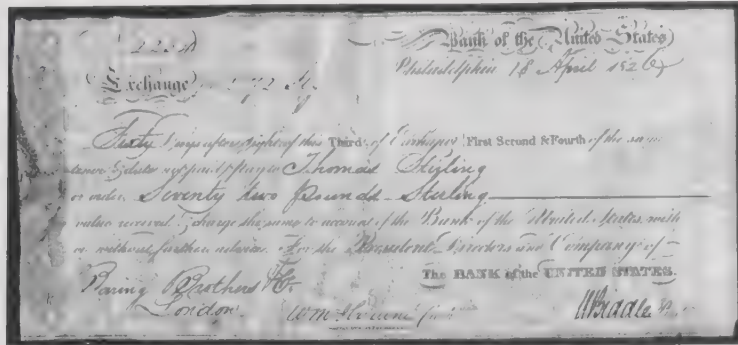 Bank of the United States
Philadelphia 18 April 1826
Exchange
Sixty Days after sight of this Third of Exchange First Second & Fourth of the same
tenor & date not paid pay to Thomas
or order Seventy two Pounds Sterling
value received & charge the same to account of the Bank of the United States, with
or without further advice. For the President Directors and Company of
The BANK of the UNITED STATES.
Baring Brothers & Co.
London
Wm
N Biddle